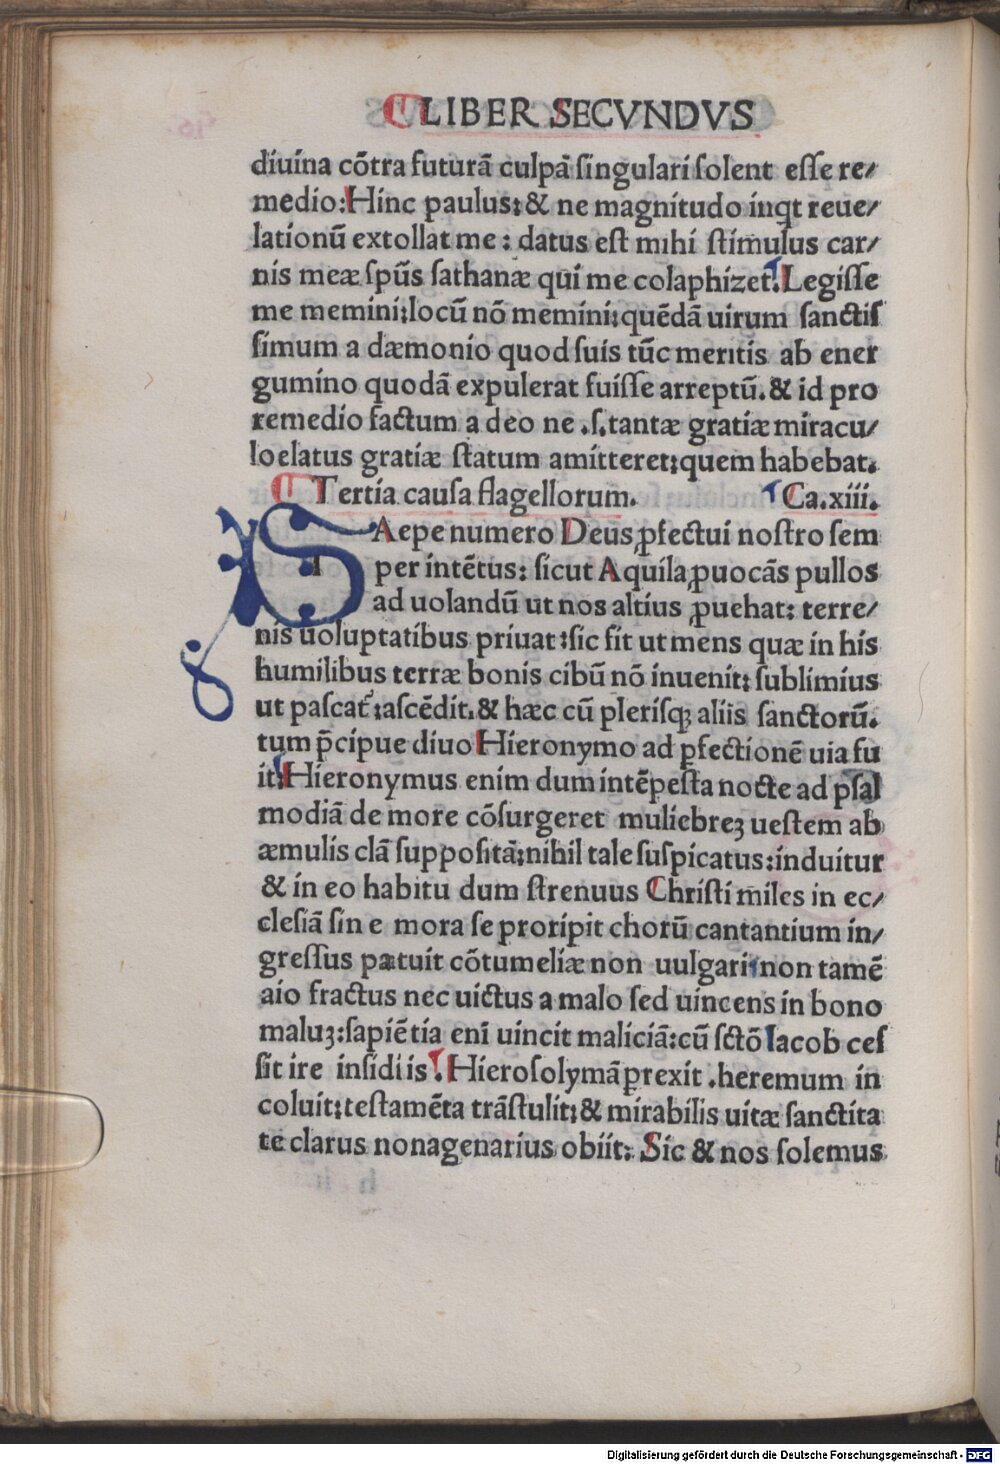 LIBER SECVNDVS
diuina cõtra futurã culpã singulari solent esse re/
medio: Hinc paulus: & ne magnitudo inqt reue/
lationũ extollat me: datus est mihi stimulus car/
nis meæ spũs sathanæ qui me colaphizet. Legisse
me memini: locũ nõ memini: quẽdã uirum sanctis
simum a dæmonio quod suis tũc meritis ab ener
gumino quodã expulerat fuisse arreptũ. & id pro
remedio factum a deo ne .s. tantæ gratiæ miracu/
lo elatus gratiæ statum amitteret: quem habebat.
Tertia causa flagellorum. Ca. xiii.
SAepe numero Deus ꝓfectui nostro sem
per intẽtus: sicut Aquila ꝓuocãs pullos
ad uolandũ ut nos altius ꝓuehat: terre/
nis uoluptatibus priuat: sic fit ut mens quæ in his
humilibus terræ bonis cibũ nõ inuenit: sublimius
ut pascat᷑: ascẽdit. & hæc cũ plerisqꝫ aliis sanctorũ.
tum p̃cipue diuo Hieronymo ad ꝑfectionẽ uia fu
it: Hieronymus enim dum intẽpesta nocte ad psal
modiã de more cõsurgeret muliebreꝫ uestem ab
æmulis clã suppositã: nihil tale suspicatus: induitur
& in eo habitu dum strenuus Christi miles in ec/
clesiã sin e mora se proripit chorũ cantantium in/
gressus patuit cõtumeliæ non uulgari non tamẽ
aio fractus nec uictus a malo sed uincens in bono
maluꝫ: sapiẽtia enĩ uincit maliciã: cũ sctõ Iacob ces
sit ire insidiis. Hierosolymã ꝑrexit .heremum in
coluit: testamẽta trãstulit: & mirabilis uitæ sanctita
te clarus nonagenarius obiit: Sic & nos solemus
Digitalisierung gefördert durch die Deutsche Forschungsgemeinschaft - DFG